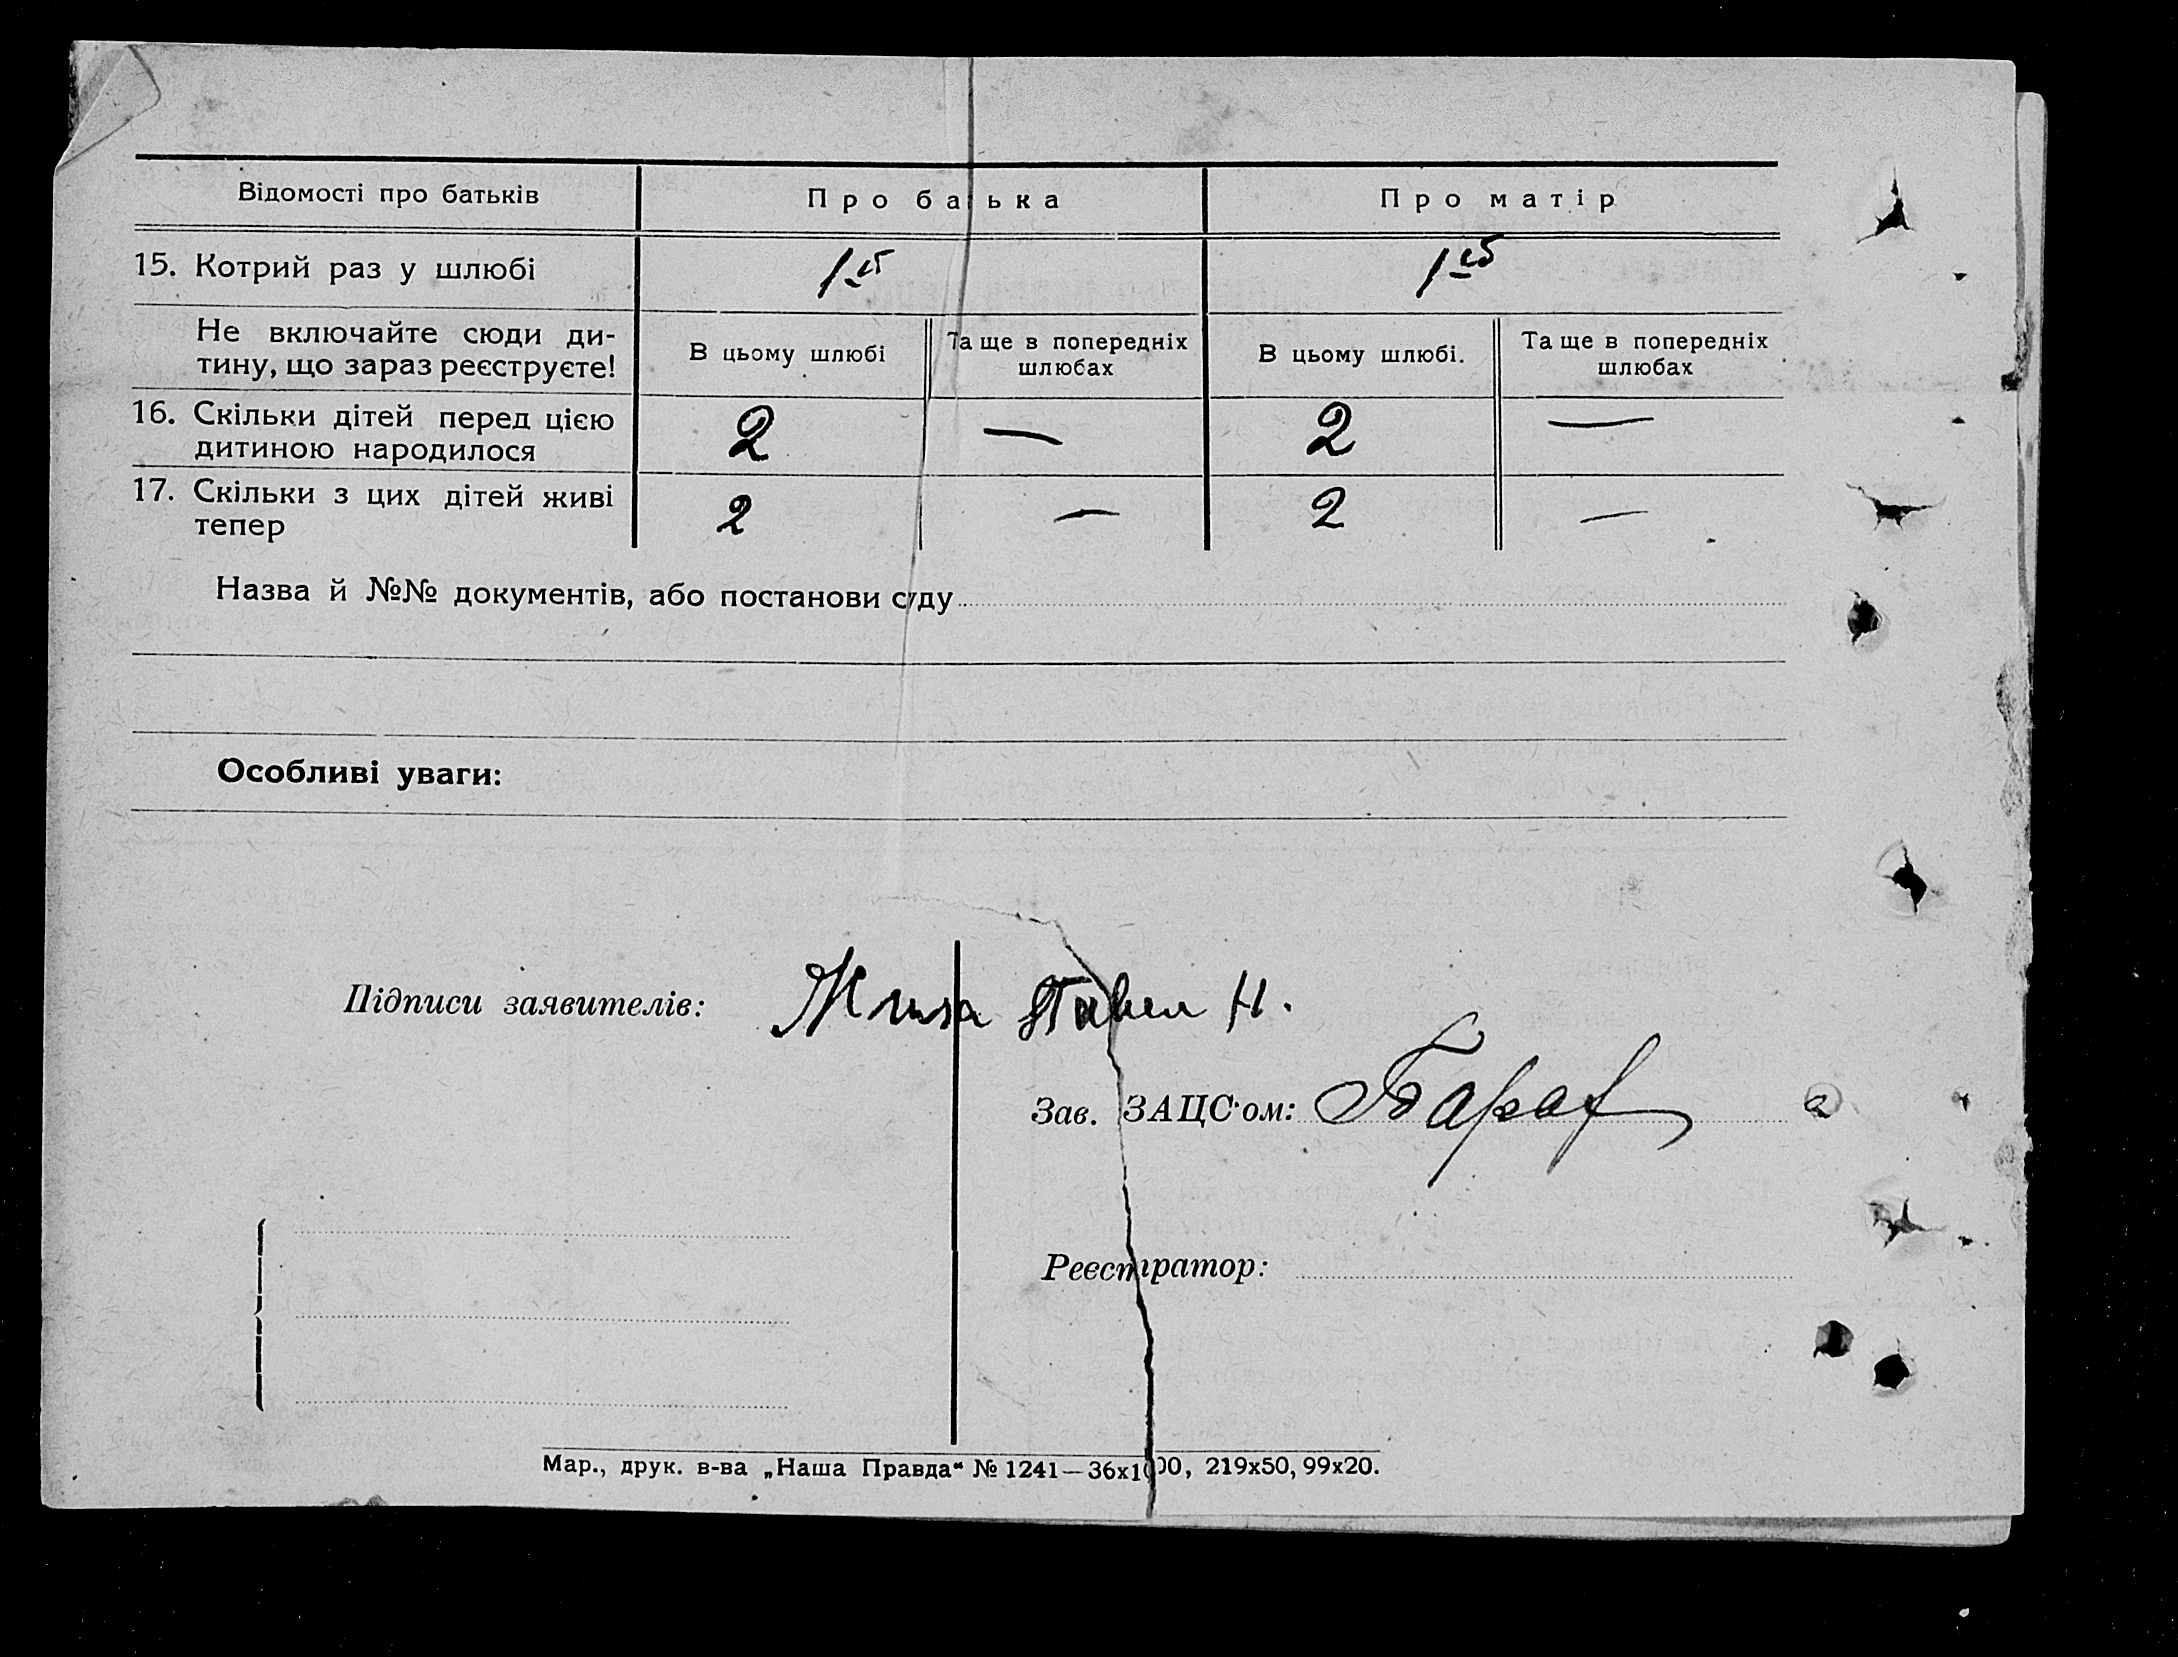 Відомості про батьків Про батька Про матір
15. Котрий раз у шлюбі 1 1
Не включайте сюди ди-
тину, що зараз реєструєте!
В цьому шлюбі
Та ще в попередніх
шлюбах
В цьому шлюбі.
Та ще в попередніх
шлюбах
16. Скільки дітей перед цією
дитиною народилося
2 — 2 —
17. Скільки з цих дітей живі
тепер
2 — 2 —
Назва й №№ документів, або постанови суду
Особливі уваги:
Підписи заявителів: Павел Н.
Зав. ЗАЦС'ом:
Реєстратор:
Мар., друк. в-ва „Наша Правда“ № 1241—36х1000, 219х50, 99х20.